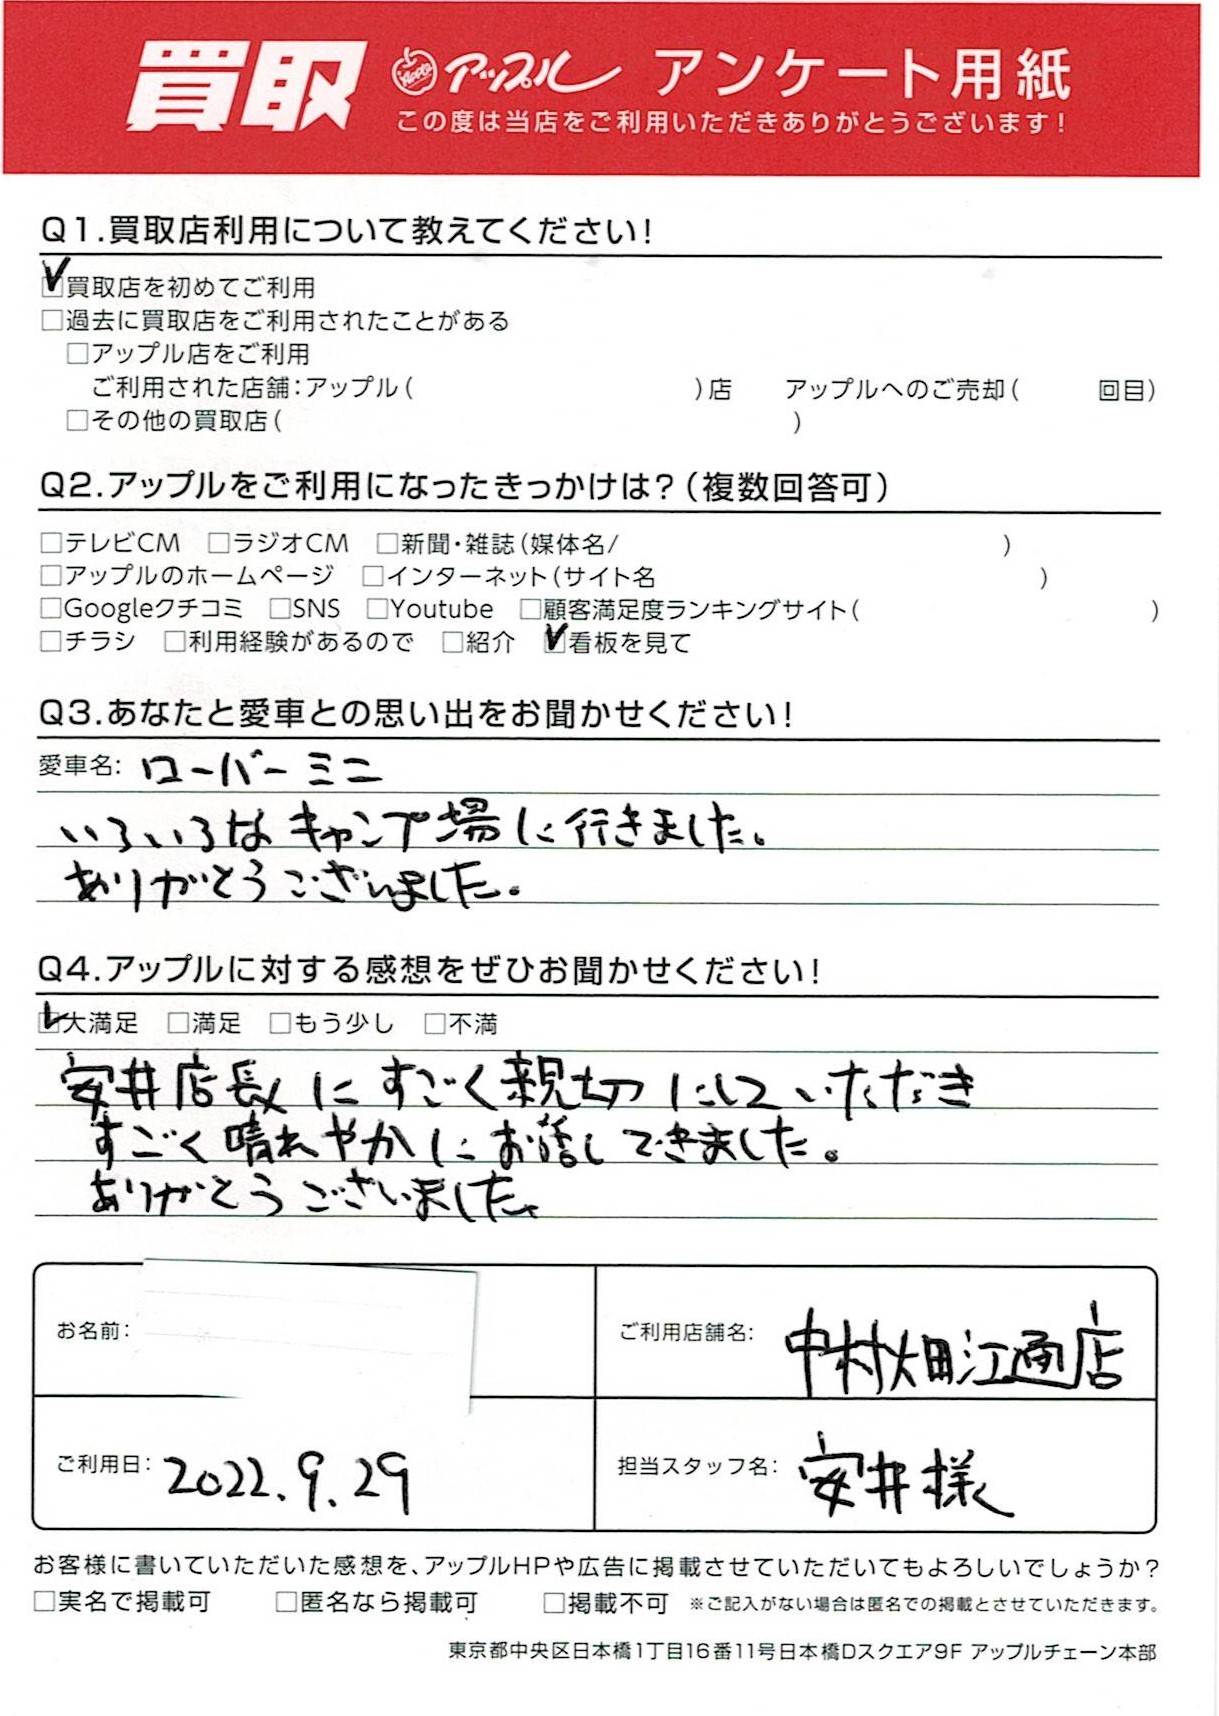 買取 Apple アップル アンケート用紙
この度は当店をご利用いただきありがとうございます!
Q1.買取店利用について教えてください!
☑買取店を初めてご利用
□過去に買取店をご利用されたことがある
□アップル店をご利用
ご利用された店舗:アップル( )店 アップルへのご売却( 回目)
□その他の買取店( )
Q2.アップルをご利用になったきっかけは?(複数回答可)
□テレビCM □ラジオCM □新聞・雑誌(媒体名/ )
□アップルのホームページ □インターネット(サイト名 )
□Googleクチコミ □SNS □Youtube □顧客満足度ランキングサイト( )
□チラシ □利用経験があるので □紹介 ☑看板を見て
Q3.あなたと愛車との思い出をお聞かせください!
愛車名: ローバーミニ
いろいろなキャンプ場に行きました。
ありがとうございました。
Q4.アップルに対する感想をぜひお聞かせください!
☑大満足 □満足 □もう少し □不満
安井店長にすごく親切にしていただき
すごく晴れやかにお話しできました。
ありがとうございました。
お名前: ご利用店舗名: 中村畑江通店
ご利用日: 2022.9.29 担当スタッフ名: 安井様
お客様に書いていただいた感想を、アップルHPや広告に掲載させていただいてもよろしいでしょうか?
□実名で掲載可 □匿名なら掲載可 □掲載不可 ※ご記入がない場合は匿名での掲載とさせていただきます。
東京都中央区日本橋1丁目16番11号日本橋Dスクエア9F アップルチェーン本部